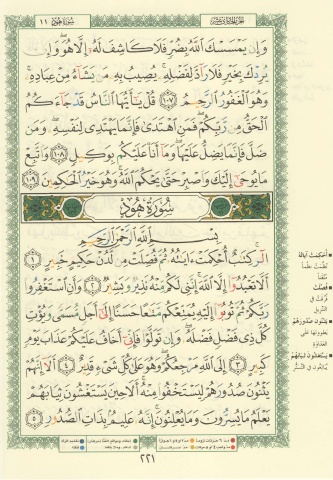 سُورَةُ هُودٍ ١١
وَإِن يَمْسَسْكَ اللَّهُ بِضُرٍّ فَلَا كَاشِفَ لَهُ إِلَّا هُوَ وَإِن
يُرِدْكَ بِخَيْرٍ فَلَا رَادَّ لِفَضْلِهِ يُصِيبُ بِهِ مَن يَشَاءُ مِنْ عِبَادِهِ
وَهُوَ الْغَفُورُ الرَّحِيمُ ١٠٧ قُلْ يَا أَيُّهَا النَّاسُ قَدْ جَاءَكُمُ
الْحَقُّ مِن رَّبِّكُمْ فَمَنِ اهْتَدَىٰ فَإِنَّمَا يَهْتَدِي لِنَفْسِهِ وَمَن
ضَلَّ فَإِنَّمَا يَضِلُّ عَلَيْهَا وَمَا أَنَا عَلَيْكُم بِوَكِيلٍ ١٠٨ وَاتَّبِعْ
مَا يُوحَىٰ إِلَيْكَ وَاصْبِرْ حَتَّىٰ يَحْكُمَ اللَّهُ وَهُوَ خَيْرُ الْحَاكِمِينَ ١٠٩
سُورَةُ هُودٍ
بِسْمِ اللَّهِ الرَّحْمَٰنِ الرَّحِيمِ
الر كِتَابٌ أُحْكِمَتْ آيَاتُهُ ثُمَّ فُصِّلَتْ مِن لَّدُنْ حَكِيمٍ خَبِيرٍ ١
أَلَّا تَعْبُدُوا إِلَّا اللَّهَ إِنَّنِي لَكُم مِّنْهُ نَذِيرٌ وَبَشِيرٌ ٢ وَأَنِ اسْتَغْفِرُوا
رَبَّكُمْ ثُمَّ تُوبُوا إِلَيْهِ يُمَتِّعْكُم مَّتَاعًا حَسَنًا إِلَىٰ أَجَلٍ مُّسَمًّى وَيُؤْتِ
كُلَّ ذِي فَضْلٍ فَضْلَهُ وَإِن تَوَلَّوْا فَإِنِّي أَخَافُ عَلَيْكُمْ عَذَابَ يَوْمٍ
كَبِيرٍ ٣ إِلَى اللَّهِ مَرْجِعُكُمْ وَهُوَ عَلَىٰ كُلِّ شَيْءٍ قَدِيرٌ ٤ أَلَا إِنَّهُمْ
يَثْنُونَ صُدُورَهُمْ لِيَسْتَخْفُوا مِنْهُ أَلَا حِينَ يَسْتَغْشُونَ ثِيَابَهُمْ
يَعْلَمُ مَا يُسِرُّونَ وَمَا يُعْلِنُونَ إِنَّهُ عَلِيمٌ بِذَاتِ الصُّدُورِ ٥
أُحْكِمَتْ آيَاتُهُ
فُصِّلَتْ
يَثْنُونَ صُدُورَهُمْ
يَسْتَغْشُونَ ثِيَابَهُمْ
٢٢١